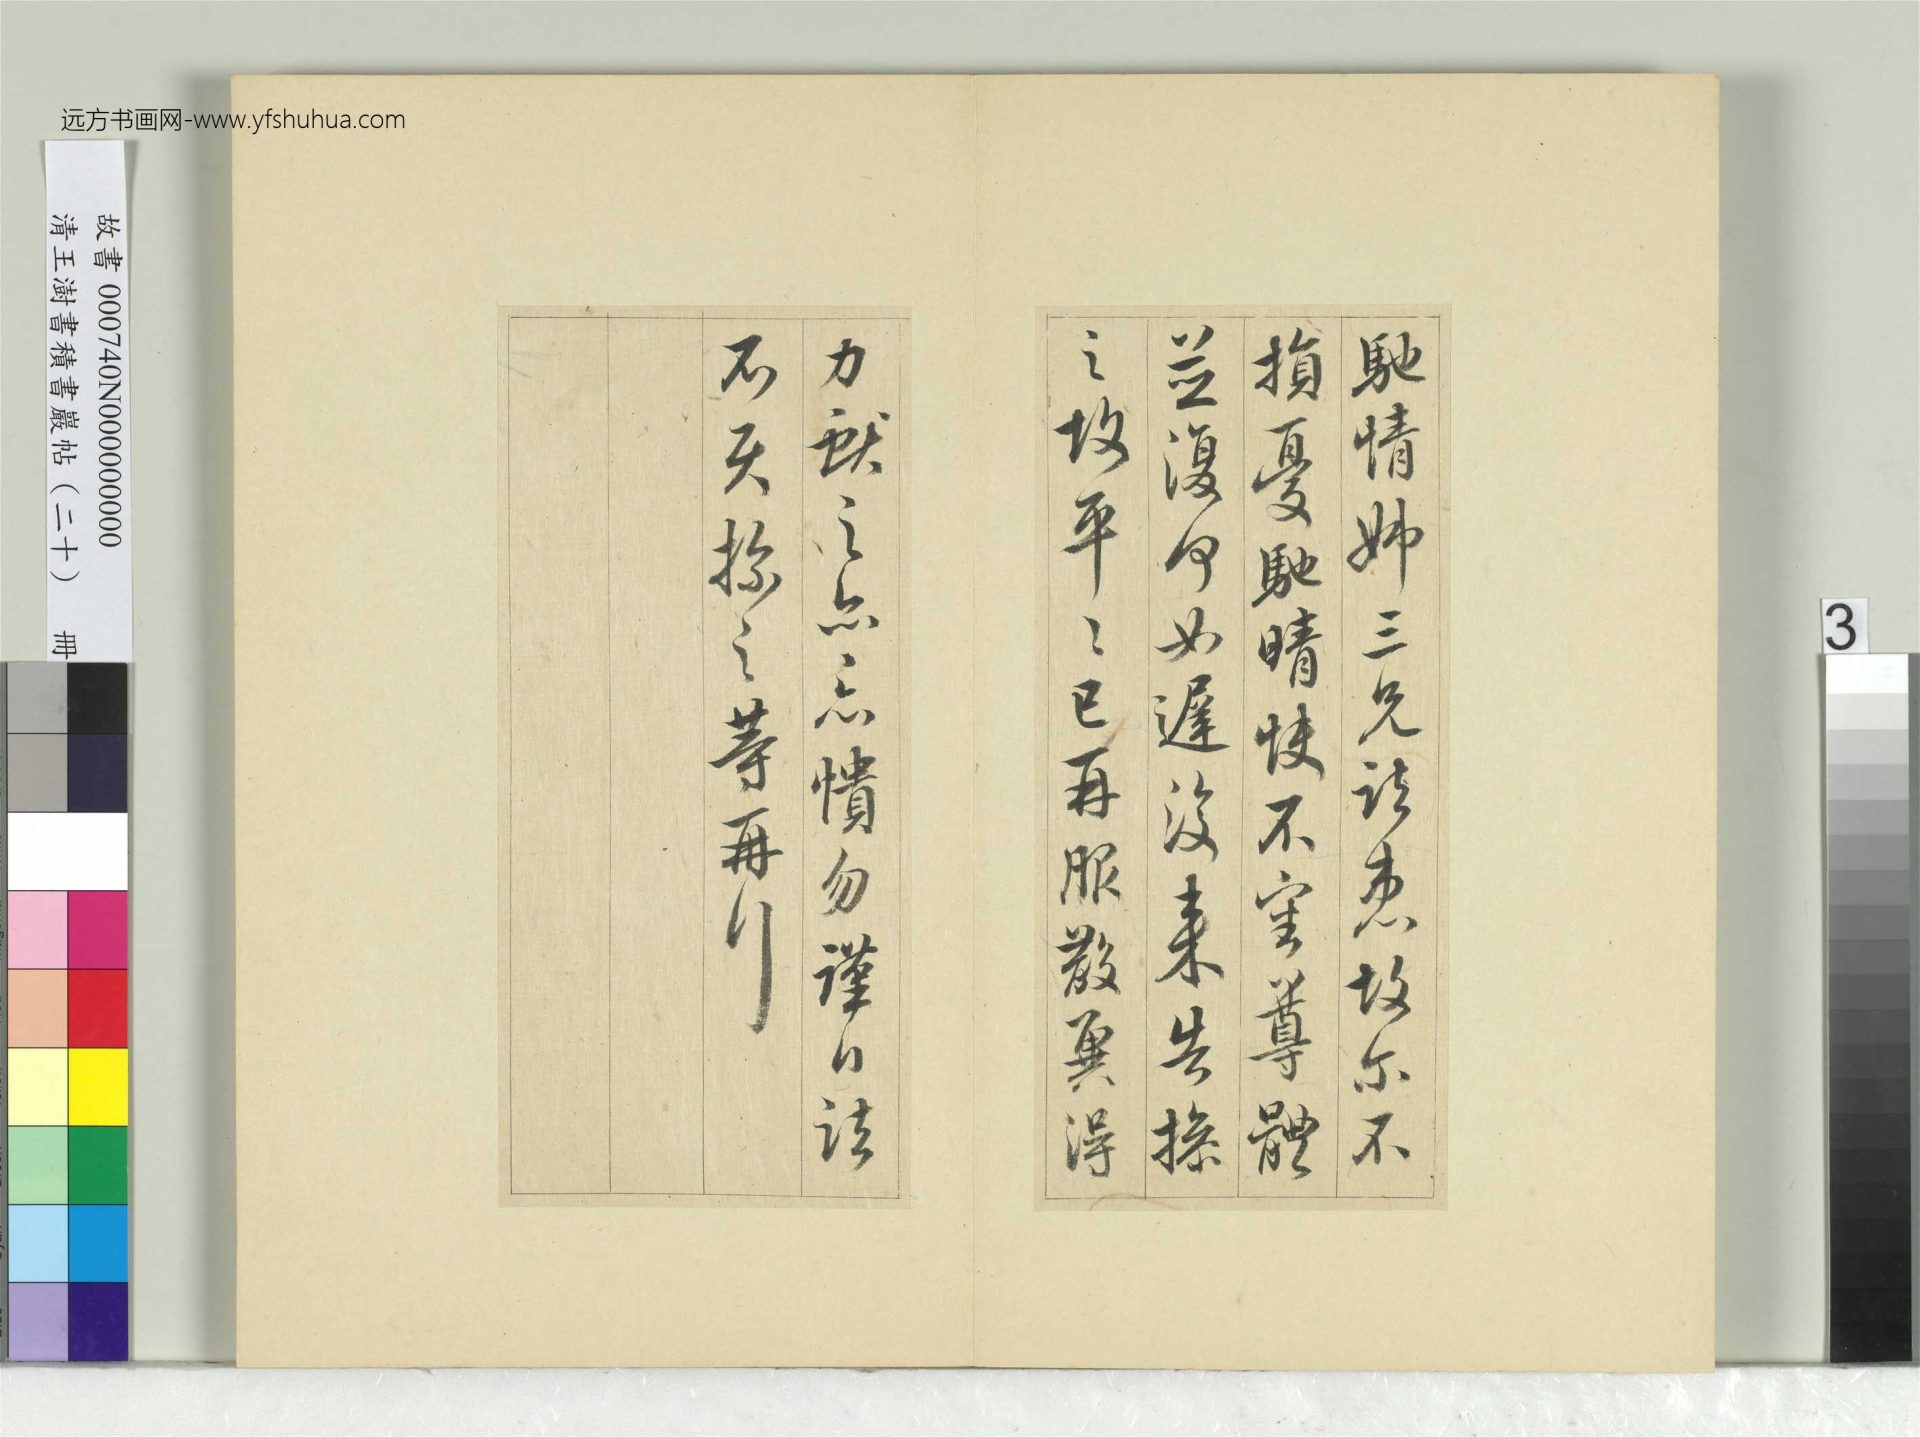 远方书画网-www.yfshuhua.com
故書 000740N000000000
清王澍書積書巖帖(二十) 冊
3
馳情姊三兄諸患故尔不
損憂馳晴悽不寧尊體
並復何如遲復來告操
之故平々已再服散冀得
力獻之忽忽憒勿謹白諸
不具操之等再行